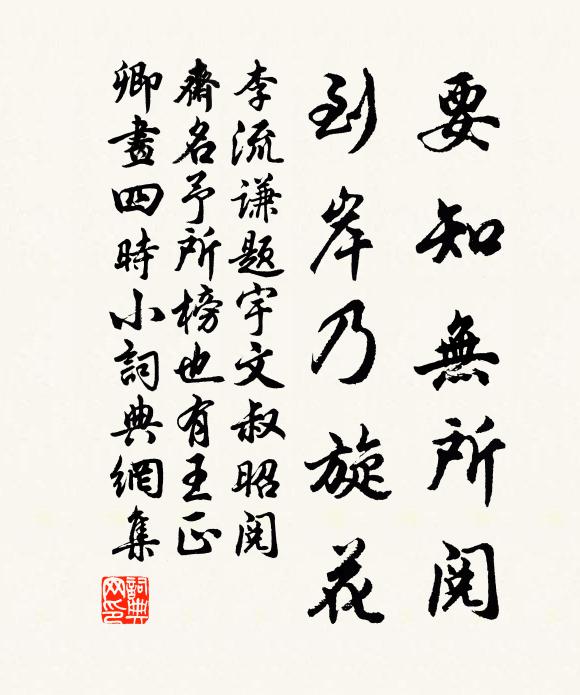 要知無所閱
到岸乃旋花
李流謙題宇文叔昭閱
齋名予所榜也有王正
卿畫四時小詞典網集
詞典網印